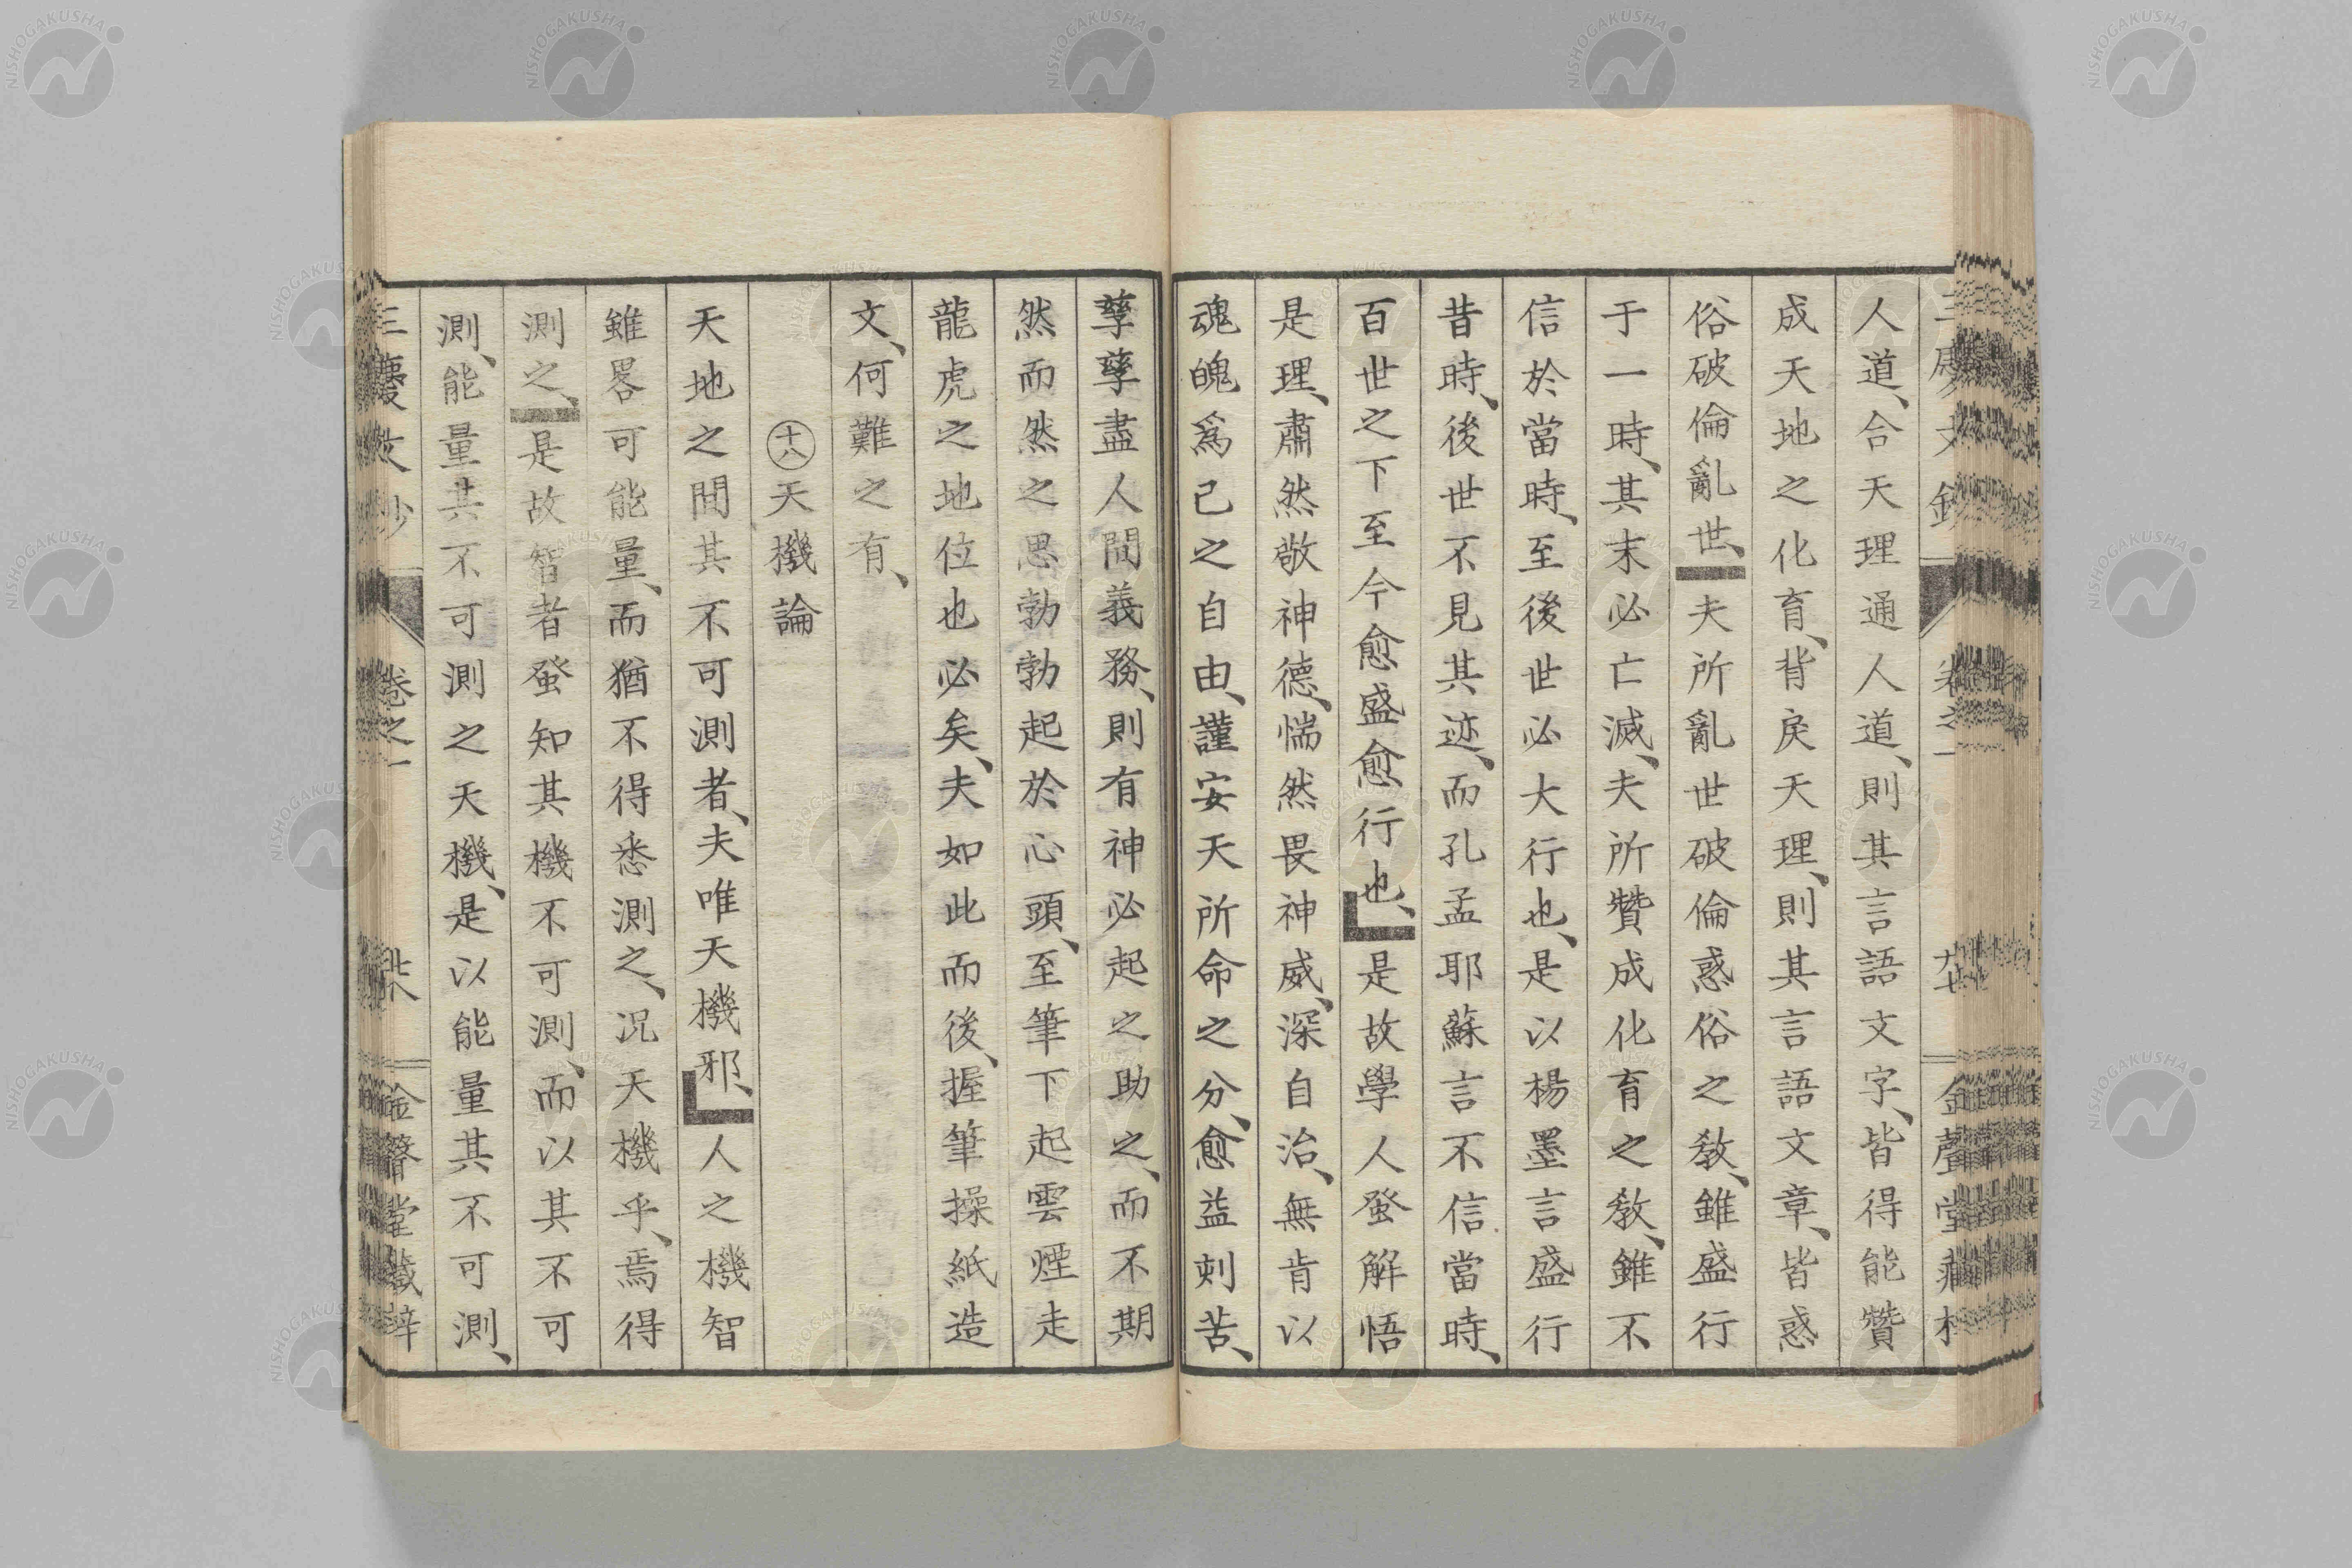 人道、合天理通人道、則其言語文字、皆得能贊
成天地之化育、背戾天理、則其言語文章、皆惑
俗破倫亂世、夫所亂世破倫惑俗之敎、雖盛行
于一時、其末必亡滅、夫所贊成化育之敎、雖不
信於當時、至後世必大行也、是以楊墨言盛行
昔時、後世不見其迹、而孔孟耶蘇言不信當時、
百世之下至今愈盛愈行也、是故學人發解悟
是理、肅然敬神德、惴然畏神威、深自治、無肯以
魂魄爲己之自由、謹安天所命之分、愈益刺苦、
孳孳盡人間義務、則有神必起之助之、而不期
然而然之思勃勃起於心頭、至筆下起雲煙走
龍虎之地位也必矣、夫如此而後、握筆操紙造
文、何難之有、
十八天機論
天地之間其不可測者、夫唯天機邪、人之機智
雖畧可能量、而猶不得悉測之、况天機乎、焉得
測之、是故智者發知其機不可測、而以其不可
測、能量其不可測之天機、是以能量其不可測、
三慶文鈔 卷之一 金聲堂藏梓